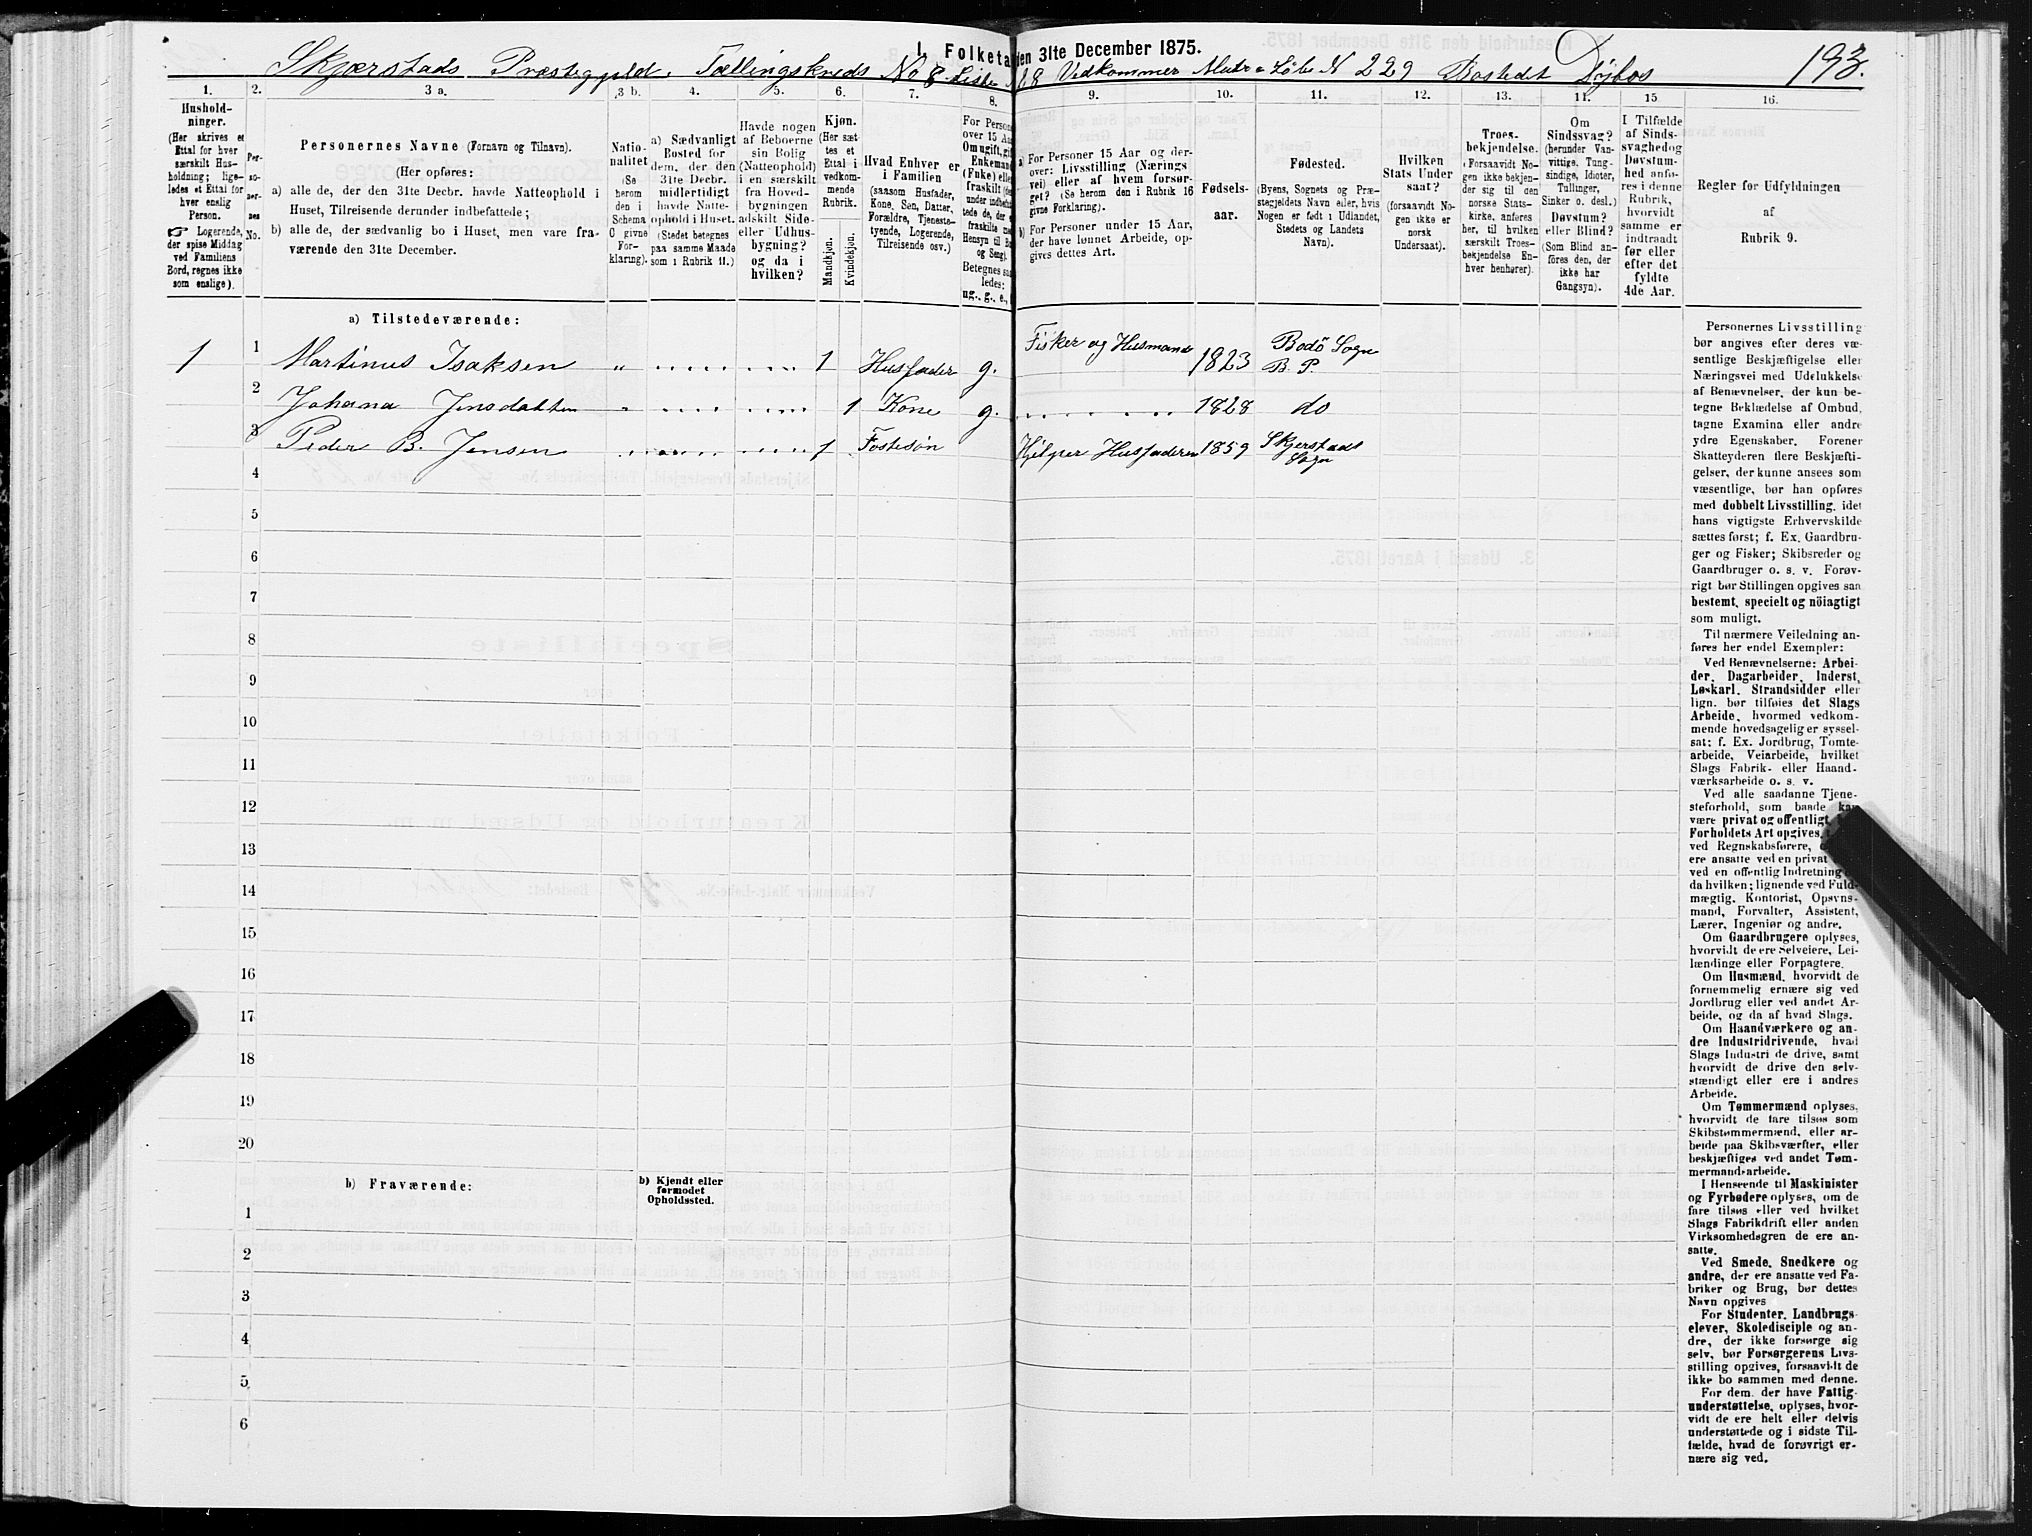 I. Folketal den 31te December 1875.
Skjærstads Præstegjeld. Tællingskreds No 8 Liste 18 Vedkommer Matr & Løbe N 229 Bostedet 193.
1. 2. 3 a. 3 b. 4. 5. 6. 7. 8. 9. 10. 11. 12. 13. 11. 15 16.
Hushold-
ninger.
(Her skrives et
Ettal for hver
særskilt Hus-
holdning; lige-
ledes et Ettal for
hver enslig
Person.
Logerende,
der spise Middag
ved Familiens
Bord, regnes ikke
som enslige).
Per-
so-
ner-
nes
No.
Personernes Navne (Fornavn og Tilnavn).
(Her opføres:
a) alle de, der den 31te Decbr. havde Natteophold i
Huset, Tilreisende derunder indbefattede;
b) alle de, der sædvanlig bo i Huset, men vare fra-
værende den 31te December.
Natio-
nalitet
(Se
herom
den i
Schema
O givne
For-
klaring).
a) Sædvanligt
Bosted for
dem, der den
31te Decbr.
midlertidigt
havde Natte-
ophold i Huset.
(Stedet betegnes
paa samme Maade
som i Rubrik 11.)
Havde nogen
af Beboerne
sin Bolig
(Natteophold)
i en særskilt
fra Hoved-
bygningen
adskilt Side-
eller Udhus-
bygning?
og da i
hvilken?
Kjøn.
(Her sæt
tes et
Ettal i
vedkom-
mende
Rubrik.
Mandkjøn.
Kvindekjøn.
Hvad Enhver er
i Familien
(saasom Husfader,
Kone, Søn, Datter,
Forældre, Tjeneste-
tyende, Logerende,
Tilreisende osv.)
For Persone
over 15 Aar
Om ugift, gift
Enkemand
(Enke) eller
fraskilt
Hensyn til Bo
og Seng).
Betegnes saa
ledes:
ug., g., e.,
a) For Personer 15 Aar og der-
over: Livsstilling (Nærings
vei) eller af hvem forsør-
get? (Se herom den i Rubrik 16
givne Forklaring).
b) For Personer under 15 Aar,
der have lønnet Arbeide, op-
gives dettes Art.
Fødsels-
aar.
Fødested.
(Byens, Sognets og Præ-
stegjeldets Navn eller, hvis
Nogen er født i Udlandet,
Stedets og Landets
Navn).
Hvilken
Stats Under
saat?
(forsaavidt No-
gen ikke er
norsk
Undersaat).
Troes-
bekjendelse.
(Forsaavidt No-
gen ikke bekjen-
der sig til den
norske Stats-
kirke, anføres
her, til hvilken
særskilt Troes-
bekjendelse En-
hver henhører).
Om
Sindssvag?
(herunder Van-
vittige, Tung-
sindige, Idioter,
Tullinger,
Sinker o. desl.)
Døvstum?
eller Blind?
(Som Blind an-
føres den, der
ikke har
Gangsyn).
I Tilfælde
af Sinds-
svaghed og
Døvstum-
hed anfø-
res i denne
Rubrik,
hvorvidt
samme er
indtraadt
før eller
efter det
fyldte
4de Aar.
Regler for Udfyldningen
af
Rubrik 9.
a) Tilstedeværende:
1 1 Martinus Isaksen 1 Husfader g. Fisker og Husmand 1823 Bodö Sogn B. P.
2 Johana Jensdatter 1 Kone g. 1828 do
3 Peder B. Jensen 1 Fostesøn Hjelper Husfaderen 1859 Skjerstads Sogn
4
5
6
7
8
9
10
11
12
13
14
15
16
17
18
19
20
b) Fraværende:
b) Kjendt eller
formodet
Opholdssted.
1
2
3
4
5
6
Personernes Livsstilling
bør angives efter deres væ
sentlige Beskjæftigelse eller
Næringsvei med Udelukkelse
af Benævnelser, der kun be-
tegne Beklædelse af Ombud,
tagne Examina eller andre
ydre Egenskaber. Forener
Skatteyderen flere Beskjæfti-
gelser, der kunne ansees som
væsentlige, bør han opføres
med dobbelt Livsstilling, idet
hans vigtigste Erhvervskilde
sættes først; f. Ex. Gaardbru-
ger og Fisker; Skibsreder og
Gaardbruger o. s. v. Forøv-
rigt bør Stillingen opgives saa
bestemt, specielt og nöiagtigt
som muligt.
Til nærmere Veiledning an-
føres her endel Exempler:
Ved Benævnelserne: Arbei-
der, Dagarbeider, Inderst,
Løskarl, Strandsidder eller
lign. bør tilføies det Slags
Arbeide, hvormed vedkom-
mende hovedsagelig er syssel-
sat; f. Ex. Jordbrug, Tomte-
arbeide, Veiarbeide, hvilket
Slags Fabrik- eller Haand-
værksarbeide o. s. v.
Ved alle saadanne Tjene-
steforhold, som baade kan
være privat og offentligt,
Forholdets Art opgives,
ved Regnskabsførere,
ere ansatte ved en privat
ved en offentlig Indretning
da hvilken; lignende ved Fuld-
mægtig, Kontorist, Opsyns-
mand, Forvalter, Assistent,
Lærer, Ingeniør og andre.
Om Gaardbrugere oplyses,
hvorvidt de ere Selveiere, Lei-
lændinge eller Forpagtere.
Om Husmænd, hvorvidt de
fornemmelig ernære sig ved
Jordbrug eller ved andet Ar-
beide, og da af hvad Slags.
Om Haandværkere og an-
dre Industridrivende, hvad
Slags Industri de drive, samt
hvorvidt de drive den selv-
stændigt eller ere i andres
Arbeide.
Om Tømmermænd oplyses,
hvorvidt de fare tilsøs som
Skibstømmermænd, eller ar-
beide paa Skibsværfter, eller
beskjæftiges ved andet Tøm-
mermandsarbeide.
I Henseende til Maskinister
og Fyrbødere oplyses, om de
fare tilsøs eller ved hvilket
Slags Fabrikdrift eller anden
Virksomhedsgren de ere an-
satte.
Ved Smede, Snedkere og
andre, der ere ansatte ved Fa-
briker og Brug, bør dettes
Navn opgives
For Studenter, Landbrugs-
elever, Skoledisciple og an-
dre, der ikke forsørge sig
selv, bør Forsørgerens Livs-
stilling opgives, forsaavidt de
ikke bo sammen med denne.
For dem, der have Fattig-
understøttelse, oplyses, hvor-
vidt de ere helt eller delvis
understøttede og i sidste Til-
fælde, hvad de forøvrigt er-
nære sig ved.